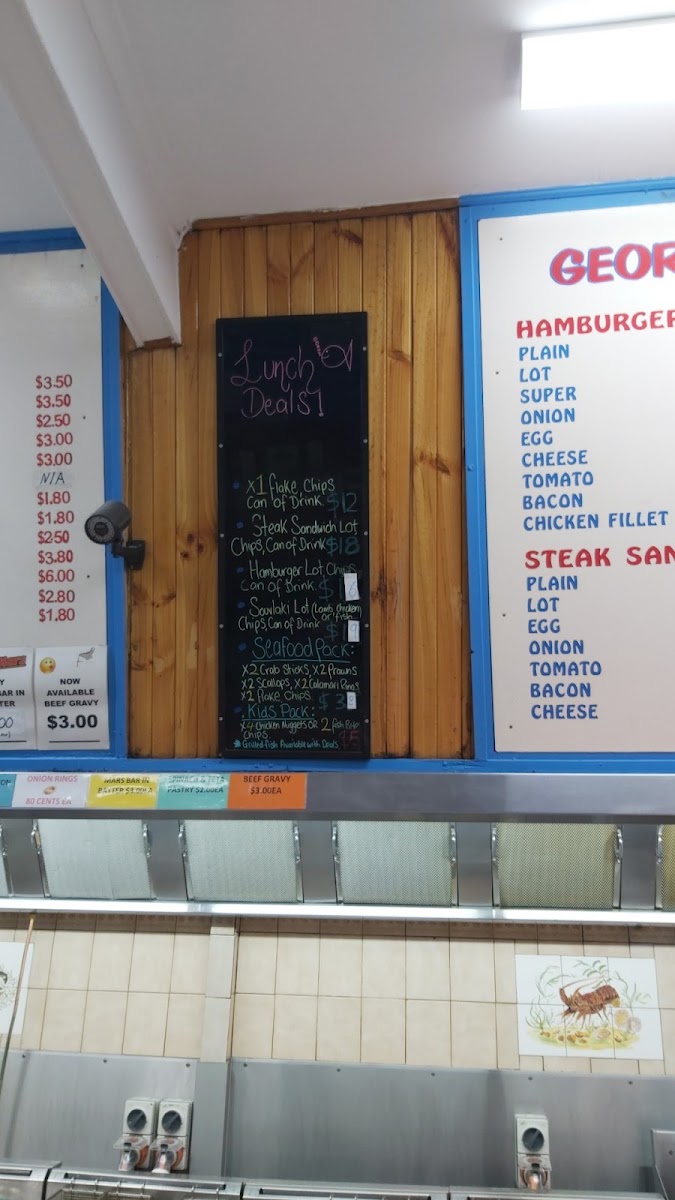 $3.50
$3.50
$2.50
$3.00
$3.00
N/A
$1.80
$1.80
$2.50
$3.80
$6.00
$2.80
$1.80
NOW
AVAILABLE
BEEF GRAVY
$3.00
Lunch
Deals!
x1 flake, Chips
Can of Drink. $12
Steak Sandwich Lot
Chips, Can of Drink $18
Hamburger Lot, Chips
Can of Drink. $ 6
Souvlaki Lot (Lamb, Chicken
Chips, Can of Drink or fish
$ 9
Seafood Pack:
x2 Crab Sticks, x2 Prawns
x2 Scallops, x2 Calamari Rings
x2 Flake Chips. $3
Kids Pack:
x4 Chicken Nuggets OR 2 fish Bites
Chips. $5
Grilled fish Available with Deals
GEOR
HAMBURGER
PLAIN
LOT
SUPER
ONION
EGG
CHEESE
TOMATO
BACON
CHICKEN FILLET
STEAK SAN
PLAIN
LOT
EGG
ONION
TOMATO
BACON
CHEESE
ONION RINGS
80 CENTS EA
MARS BAR IN
BATTER $3.00EA
SPINACH & FETA
PASTRY $2.00EA
BEEF GRAVY
$3.00EA